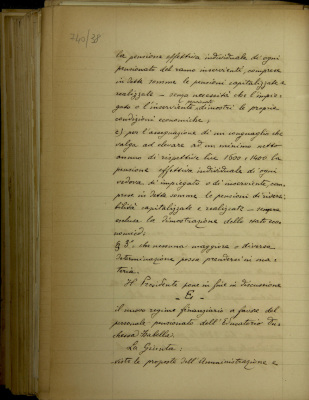 740/38
la pensione effettiva individuale di ogni
pensionato del ramo inservienti, comprese
in dette somme le pensioni capitalizzate e
realizzate – senza necessità che l'impie-
gato o l'inserviente dimostri le proprie
presenti
condizioni economiche;
c) per l'assegnazione di un conguaglio che
valga ad elevare ad un minimo netto
annuo di rispettive lire 1600 e 1400 la
pensione effettiva individuale di ogni
vedova d'impiegato o di inserviente, com
prese in dette somme le pensioni di river
bilità capitalizzate e realizzate – sempre
esclusa la dimostrazione dello stato eco
nomico;
§ 3° che nessuna maggiore o diversa
determinazione possa prendersi in ma
teria.
Il Presidente pone in fine in discussione
– E –
il nuovo regime finanziario a favore del
personale pensionato dell'Educatorio Du-
chessa Isabella.
La Giunta:
viste le proposte dell'Amministrazione e